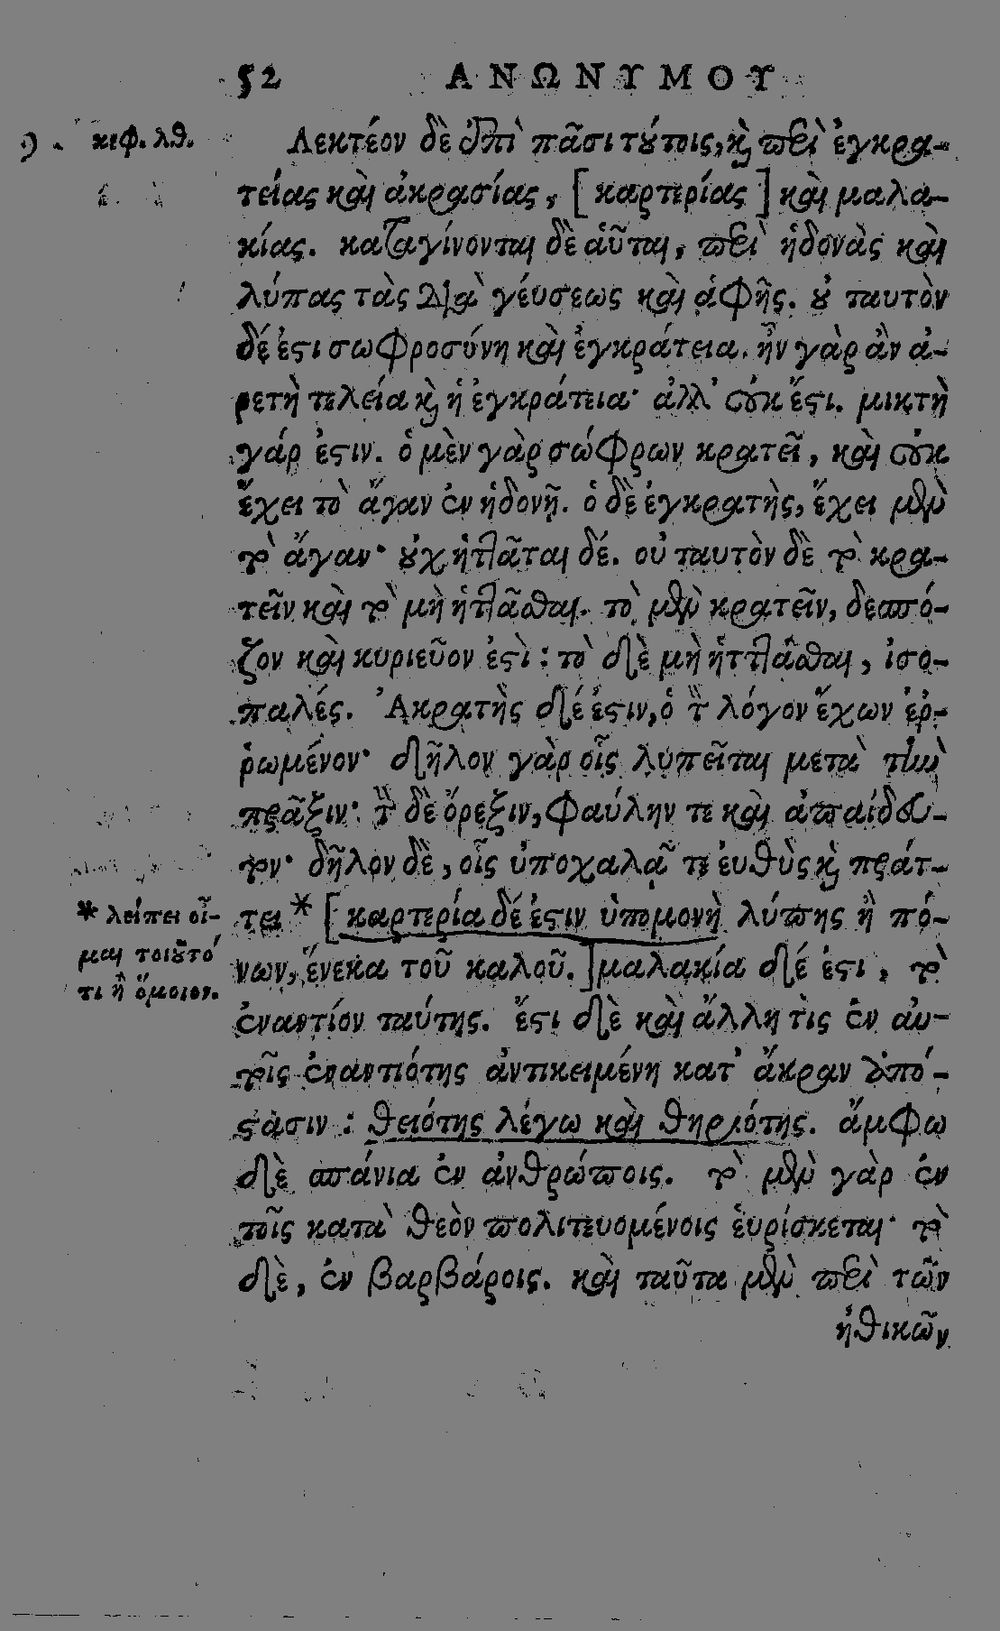 52 ΑΝΩΝΥΜΟΥ
κεφ. λθ.
Λεκτέον δὲ ἐπὶ πᾶσι τούτοις, καὶ περὶ ἐγκρα-
τείας καὶ ἀκρασίας, [καρτερίας] καὶ μαλα-
κίας. καταγίνονται δὲ αὗται, περὶ ἡδονὰς καὶ
λύπας τὰς διὰ γεύσεως καὶ ἁφῆς. οὐ ταυτὸν
δέ ἐστι σωφροσύνη καὶ ἐγκράτεια. ἦν γὰρ ἂν ἀ-
ρετὴ τελεία καὶ ἡ ἐγκράτεια· ἀλλ' οὐκ ἔστι. μικτὴ
γάρ ἐστιν. ὁ μὲν γὰρ σώφρων κρατεῖ, καὶ οὐκ
ἔχει τὸ ἄγαν ἐν ἡδονῇ. ὁ δὲ ἐγκρατὴς, ἔχει μὲν
τὸ ἄγαν· οὐχ ἡττᾶται δέ. οὐ ταυτὸν δὲ τὸ κρα-
τεῖν καὶ τὸ μὴ ἡττᾶσθαι. τὸ μὲν κρατεῖν, δεσπό-
ζον καὶ κυριεῦον ἐστὶ: τὸ δὲ μὴ ἡττᾶσθαι, ἰσο-
παλές. Ἀκρατὴς δέ ἐστιν, ὁ τὸν λόγον ἔχων ἐῤ-
ῥωμένον· δῆλον γὰρ οἷς λυπεῖται μετὰ τὴν
πρᾶξιν: τὴν δὲ ὄρεξιν, φαύλην τε καὶ ἀπαίδευ-
τον· δῆλον δὲ, οἷς ὑποχαλᾷ τε εὐθὺς καὶ πράτ-
τει * [καρτερία δέ ἐστιν ὑπομονὴ λύπης ἢ πό-
* λείπει οἶ-
μαι τοιοῦτό
τι ἢ ὅμοιον.
νων, ἕνεκα τοῦ καλοῦ.] μαλακία δέ ἐστι, τὸ
ἐναντίον ταύτης. ἔστι δὲ καὶ ἄλλη τὶς ἐν αὐ-
τοῖς ἐναντιότης ἀντικειμένη κατ' ἄκραν ἀπό-
στασιν: θειότης λέγω καὶ θηριότης. ἄμφω
δὲ σπάνια ἐν ἀνθρώποις. τὸ μὲν γὰρ ἐν
τοῖς κατὰ θεὸν πολιτευομένοις εὑρίσκεται· τὸ
δὲ, ἐν βαρβάροις. καὶ ταῦτα μὲν περὶ τῶν
ἠθικῶν